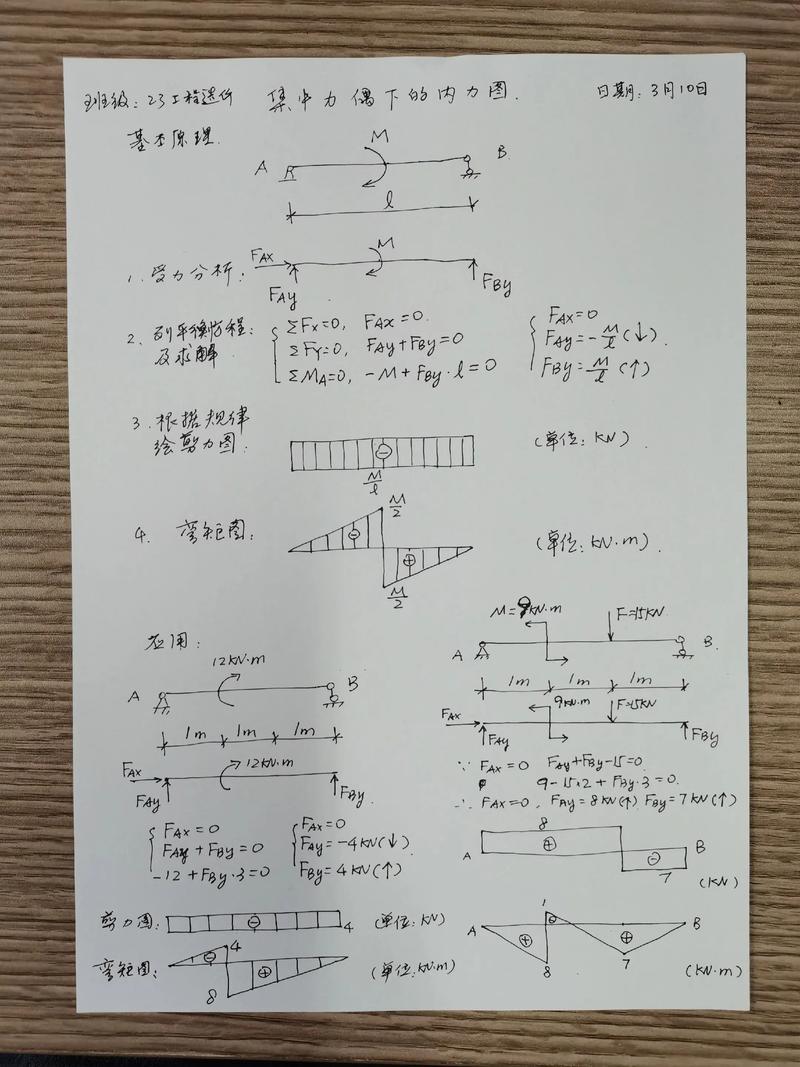 班级：23工程造价 集中力偶下的内力图. 日期：3月10日
基本原理.
M
A B.
l
1. 受力分析：
FAX M
FAy FBy
2. 列平衡方程：
及求解
ΣFx=0, FAX=0.
ΣFY=0, FAy+FBy=0
ΣMA=0, -M+FBy·l=0
FAX=0
FAy=-M/l(↓)
FBy=M/l(↑)
3. 根据规律
绘剪力图.
⊖
M/l
(单位：KN).
4. 弯矩图：
M/2
⊖
⊕
M/2
(单位：KN·m).
应用：
12KN·m
A B
1m 1m 1m
FAX 12KN·m
FAy FBy
FAX=0
FAy+FBy=0
-12+FBy·3=0
FAX=0
FAy=-4KN(↓)
FBy=4KN(↑)
剪力图： ⊖ 4 (单位：KN)
弯矩图： ⊖ 4 ⊕ (单位：KN·m)
8
M=9KN·m F=15KN
A B.
1m 1m 1m
FAX 9KN·m F=15KN
FAy FBy
∵ FAX=0 FAy+FBy-15=0.
9-15×2+FBy·3=0.
∴ FAX=0, FAy=8KN(↑) FBy=7KN(↑)
8
A ⊕ ⊖ B
7 (KN)
1
A ⊕ ⊖ ⊕ B
8 7 (KN·m)